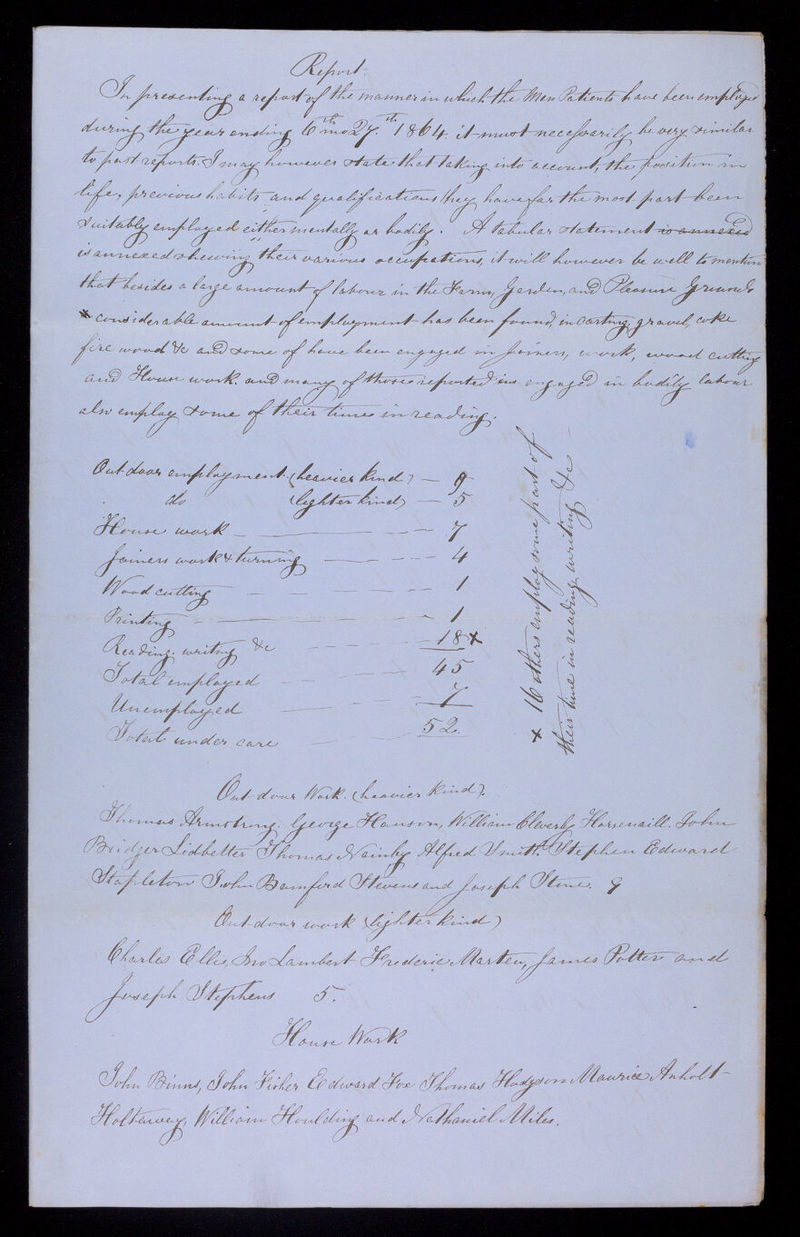 Report.
In presenting a report of the manner in which the Men Patients have been employed
during the year ending 6th mo 27th 1864. it must necessarily be very similar
to past reports. I may however state that taking into account, the position in
life, previous habits and qualifications they have for the most part been
suitably employed either mentally or bodily. A tabular statement is annexed
is annexed shewing their various occupations, it will however be well to mention
that besides a large amount of labour in the Farm, Garden, and Pleasure Grounds
a considerable amount of employment has been found, in carting gravel, coke
fire wood &c and some of have been engaged in Joiners, work, wood cutting
and House work. and many of those reported as engaged in bodily labour
also employ some of their times in reading.
Out door employment (heavier kind) — 9
do (lighter kind) — 5
House work — 7
Joiners work & turning — 4
Wood cutting — 1
Printing — 1
Reading, writing &c — 18 x
Total employed — 45
Unemployed — 7
Total under care — 52
x 16 others employ some part of
their time in reading, writing &c —
Out door Work. (heavier kind).
Thomas Armstrong, George Hanson, William Cleverly Horsnaill. John
Bridger Lidbetter Thomas Nainby Alfred Smith Stephen Edward
Stapleton John Bamford Stevens and Joseph Stone. 9
Out door work (lighter kind)
Charles Ellis, Jno Lambert Frederic Marten, James Potter and
Joseph Stephens 5.
House Work
John Binns, John Fisher Edward Fox Thomas Hodgson Maurice Anholt
Holtaway, William Houlding and Nathaniel Miles.